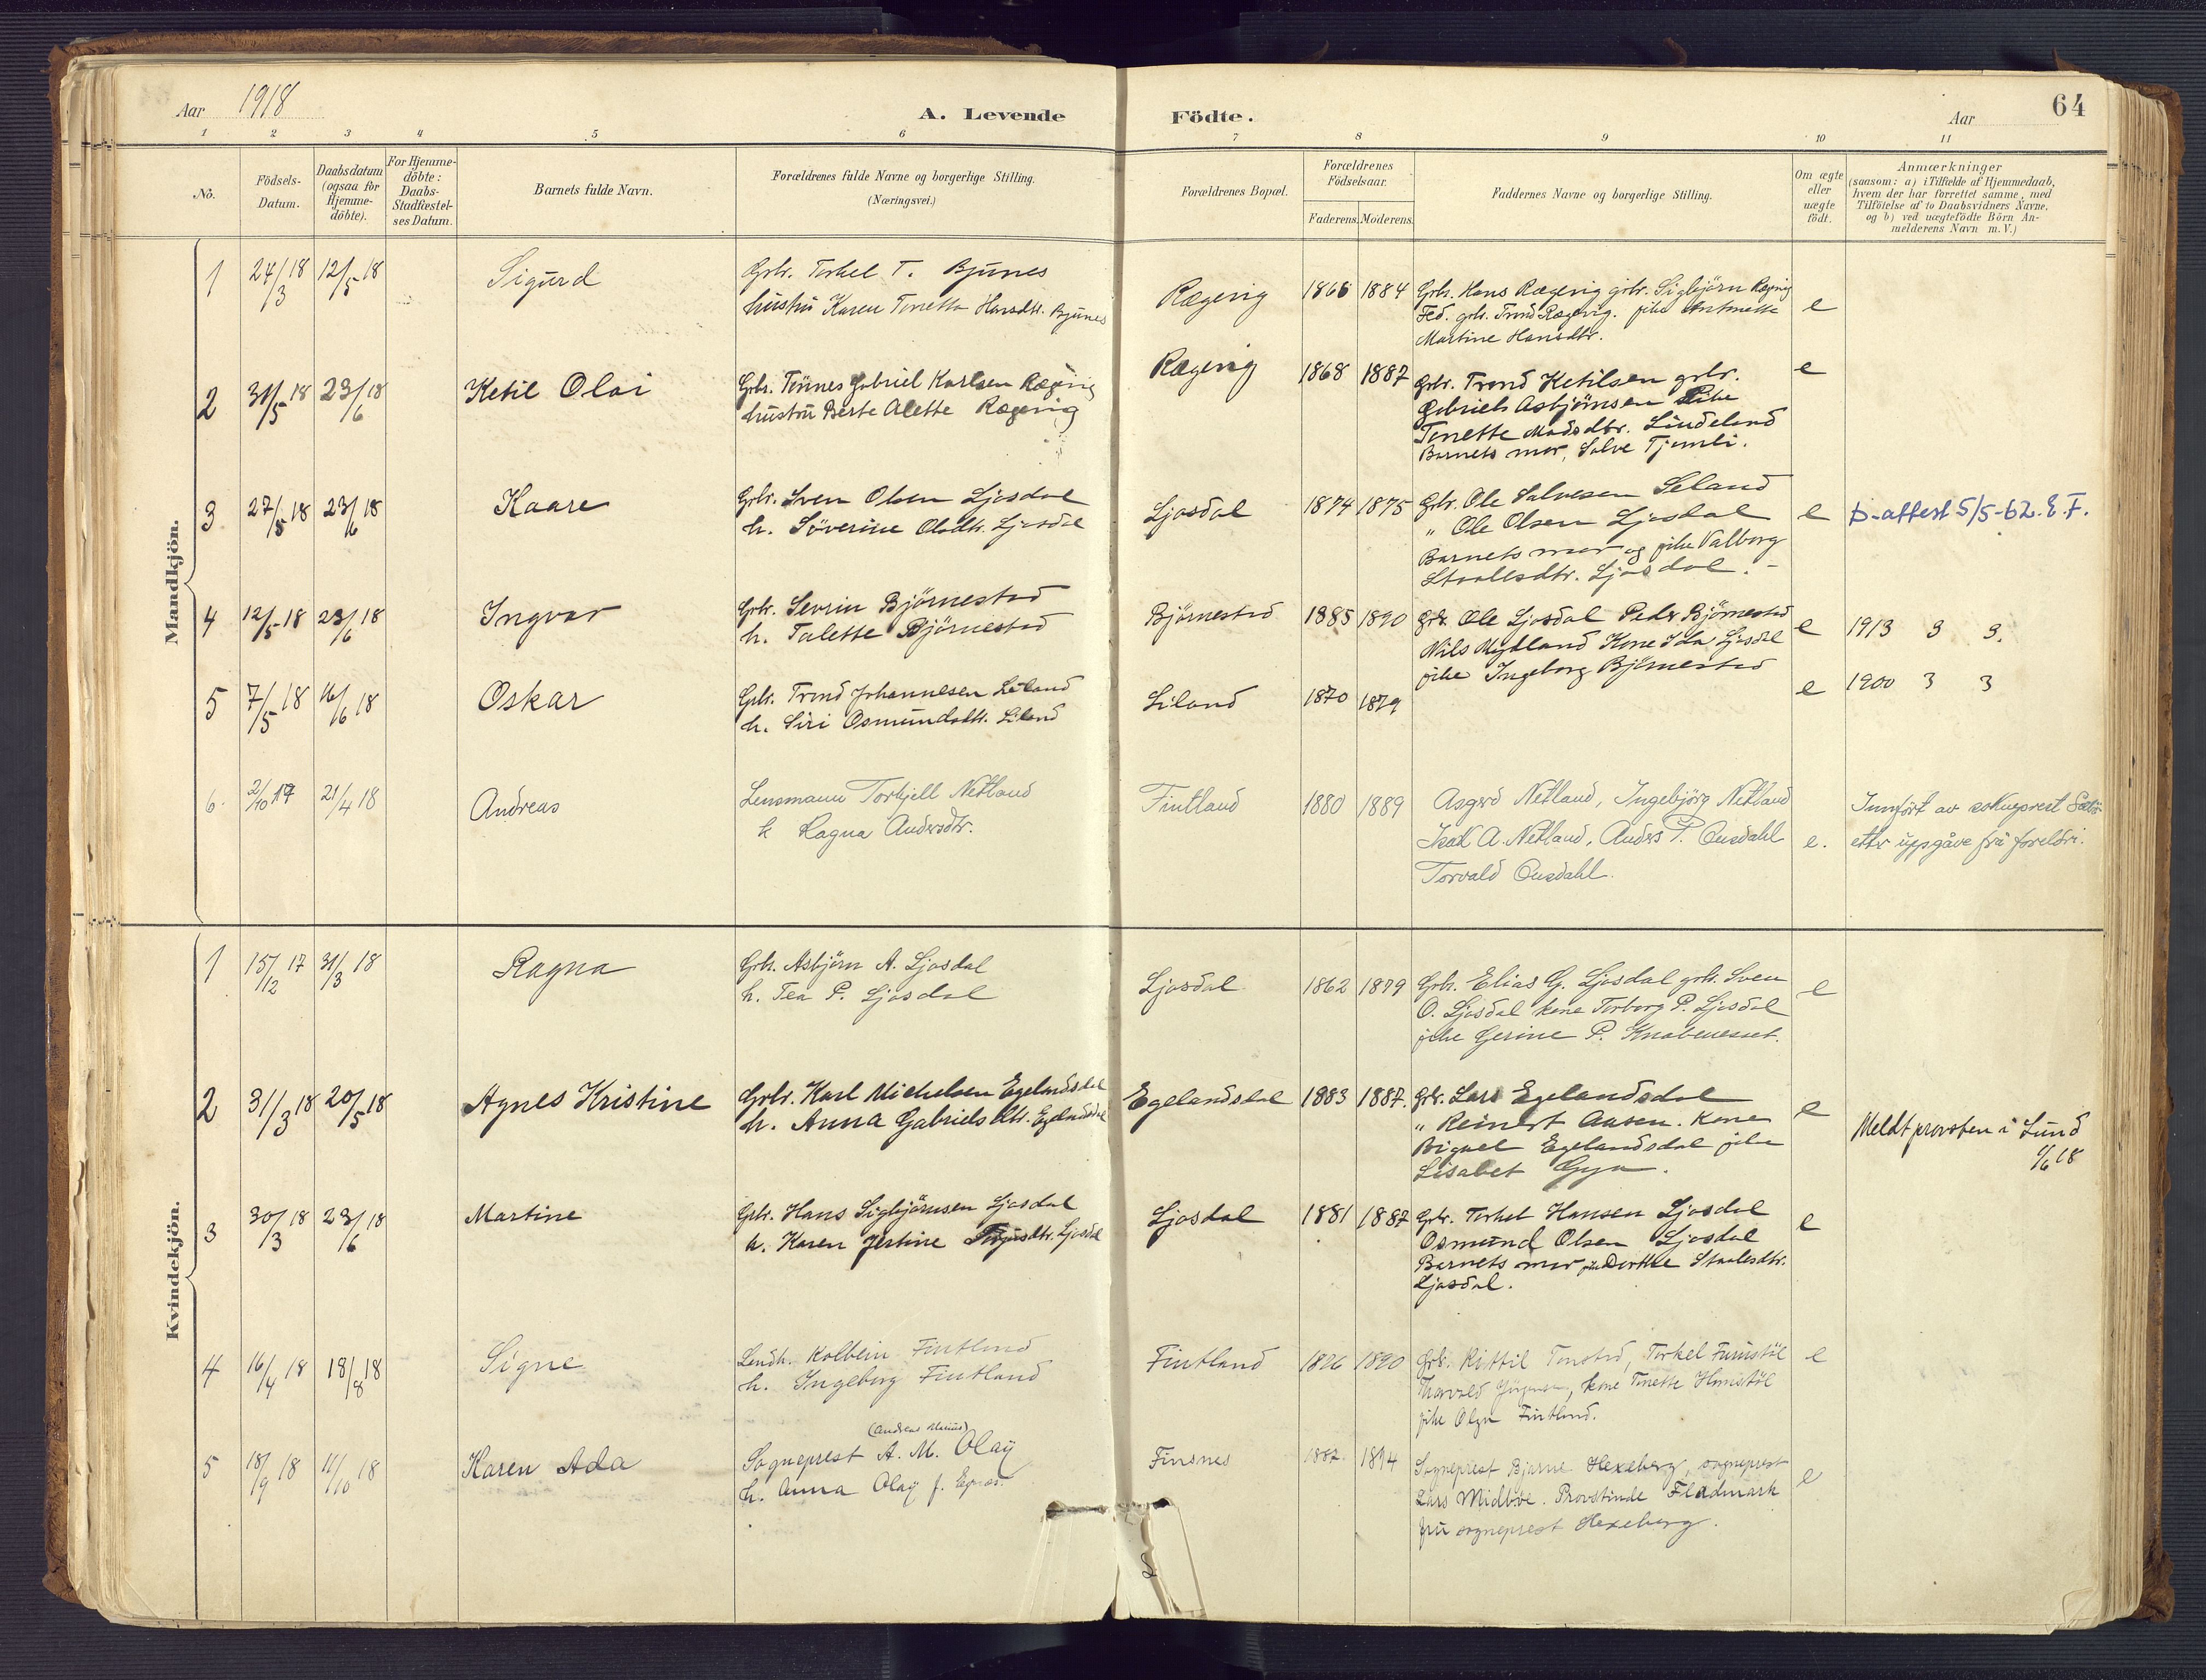 Aar 1918
A. Levende Födte.
Aar
64
1 2 3 4 5 6 7 8 9 10 11
No.
Födsels-Datum.
Daabsdatum (ogsaa for Hjemme-döbte).
For Hjemme-döbte: Daabs-Stadfæstel-ses Datum.
Barnets fulde Navn.
Forældrenes fulde Navne og borgerlige Stilling.
(Næringsvei.)
Forældrenes Bopæl.
Forældrenes Födselsaar.
Faderens. Moderens.
Faddernes Navne og borgerlige Stilling.
Om ægte eller uægte födt.
Anmærkninger
(saasom: a) i Tilfælde af Hjemmedaab,
hvem der har forrettet samme, med
Tilföielse af to Daabsvidners Navne,
og b) ved uægtefödte Börn An-
melderens Navn m. V.)
Mandkjön.
1 24/3 18 12/5 18 Sigurd
Grbr. Torkel T. Bjunes
hustru Karen Tonette Hansdtr. Bjunes
Rægevig 1866 1884
Grbr. Hans Rægevig grbr. Sigbjörn Rægevig
Fed. grbr. Trond Rægevig. pike Antonette
Martine Hansdtr.
e
2 31/5 18 23/6 18 Ketil Olai
Grbr. Tönnes Gabriel Karlsen Rægevig
hustru Berte Alette Rægevig
Rægevig 1868 1887
Grbr. Trond Ketilsen grbr.
Gabriel Asbjörnsen Pike
Tonette Madsdtr. Lindeland
Barnets mor, Salve Tjomli.
e
3 27/5 18 23/6 18 Kaare
Grbr. Sven Olsen Ljosdal
h. Söverine Olsdtr. Ljosdal
Ljosdal 1874 1875
Grbr. Ole Salvesen Seland
" Ole Olsen Ljosdal
Barnets mor og pike Valborg
Staalesdtr. Ljosdal. -
e
D-attest 5/5-62. E. F.
4 12/5 18 23/6 18 Ingvar
Grbr. Sevrin Björnestad
h. Talette Björnestad
Björnestad 1885 1890
Grbr. Ole Ljosdal Peder Björnestad
Nils Mydland Kone Ida Ljosdal
pike Ingeborg Björnestad
e
1913 3 3.
5 7/5 18 16/6 18 Oskar
Grbr. Trond Johannesen Liland
h. Siri Osmundsdtr. Liland
Liland 1870 1879
e
1900 3 3
6. 2/10 17 21/4 18 Andreas
Lensmann Torkjell Netland
h Ragna Andersdtr.
Fintland 1880 1889
Asgerd Netland, Ingebjörg Netland
Isak A. Netland, Anders P. Ousdahl
Torvald Ousdahl.
e.
Innfört av sokneprest
etter uppgåve frå foreldri.
Kvindekjön.
1 15/12 17 31/3 18 Ragna
Grbr. Asbjörn A. Ljosdal
h. Tea P. Ljosdal
Ljosdal 1862 1879
Grbr. Elias G. Ljosdal grbr. Sven
O. Ljosdal kone Torborg P. Ljosdal
pike Gerine P. Knabenesset.
e
2 31/3 18 20/5 18 Agnes Kristine
Grbr. Karl Michelsen Egelandsdal
h. Anna Gabrielsdtr. Egelandsdal
Egelandsdal 1883 1887.
Grbr. Lars Egelandsdal
" Reinert Aasen. Kone
Egelandsdal pike
Lisabet Gya.
e
Meldt provsten i Lund
1/6 18
3 30/3 18 23/6 18 Martine
Grbr. Hans Sigbjörnsen Ljosdal
h. Karen Jestine Ljosdal
Ljosdal 1881 1887
Grbr. Torkel Hansen Ljosdal
Osmund Olsen Ljosdal
Barnets mor pike Dorthe Staalesdtr.
Ljosdal.
e
4 16/4 18 18/8 18 Signe
Landh. Kolbein Fintland
h. Ingeborg Fintland
Fintland 1890
Grbr. Kittil Tonstad, Torkel
kone Tonette
pike Olga Fintland.
e
5 18/9 18 11/10 18 Karen Ada
(Andreas )
Sogneprest A. M. Olaÿ
h. Anna Olaÿ f.
Finsnes 1882. 1894
Sogneprest Bjarne Hexeberg, sogneprest
Lars Midböe. Provstinde Fladmark
fru sogneprest Hexeberg.
e